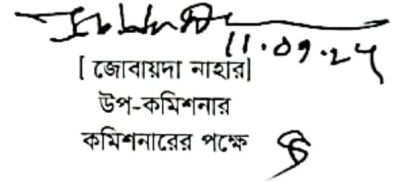 11.09.24
[ জোবায়দা নাহার]
উপ-কমিশনার
কমিশনারের পক্ষে